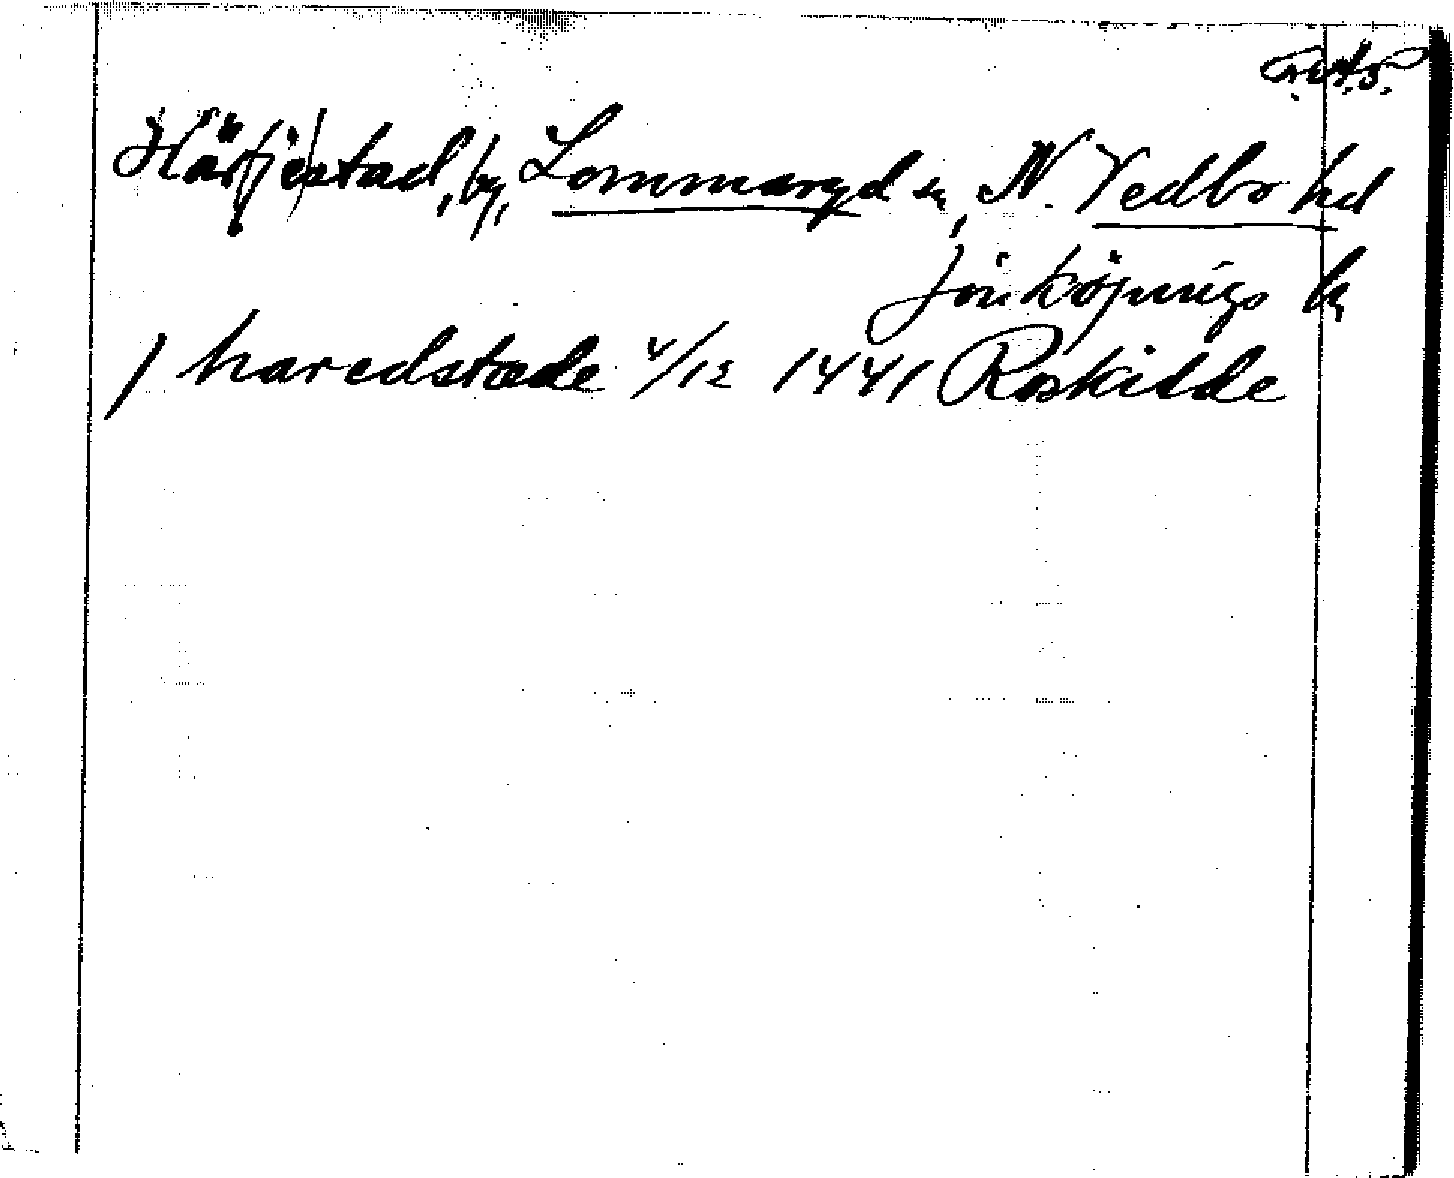 Härjestad, by, Lommaryd sn, N. Vedbo hd
Jönköpings ln
haredstæde 4/12 1441 Roskilde